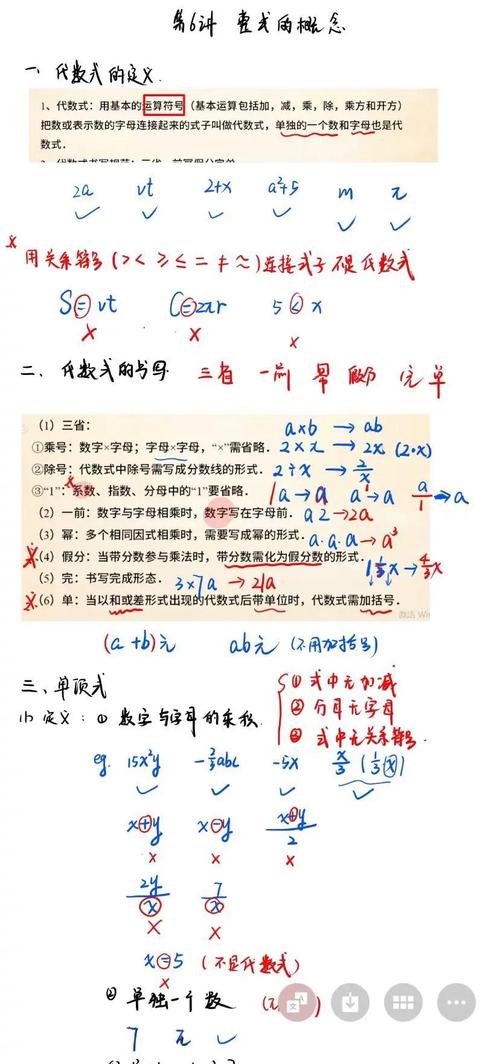 第6讲 整式的概念
一、代数式的定义.
1、代数式：用基本的运算符号（基本运算包括加，减，乘，除，乘方和开方）
把数或表示数的字母连接起来的式子叫做代数式，单独的一个数和字母也是代
数式.
2a vt 2+x a²+5 m π
✓ ✓ ✓ ✓ ✓ ✓
用关系符号(> < ≥ ≤ = ≠ ≈)连接式子不是代数式
S=vt C=2πr 5<x
× × ×
二、代数式的书写 三省 一前 幂 假分 完 单
（1）三省： a×b → ab
①乘号：数字×字母；字母×字母，“×”需省略. 2×x → 2x (2·x)
②除号：代数式中除号需写成分数线的形式. 2÷x → 2/x
③“1”：系数、指数、分母中的“1”要省略. 1a→a a¹→a a/1→a
（2）一前：数字与字母相乘时，数字写在字母前. a2→2a
（3）幂：多个相同因式相乘时，需要写成幂的形式. a·a·a→a³
（4）假分：当带分数参与乘法时，带分数需化为假分数的形式. 1⅓x→4/3x
（5）完：书写完成形态. 3×7a → 21a
（6）单：当以和或差形式出现的代数式后带单位时，代数式需加括号.
(a+b)元 ab元 (不用加括号)
三、单项式
①式中无加减
②分母无字母
③式中无关系符号.
(1) 定义：① 数字与字母的乘积.
eg. 15x²y -⅔abc -5x x/3 (⅓x)
✓ ✓ ✓ ✓
x+y x-y x+y/2
× × ×
2y/x 7/x
× ×
x=5 (不是代数式)
×
② 单独一个数
7 π ✓